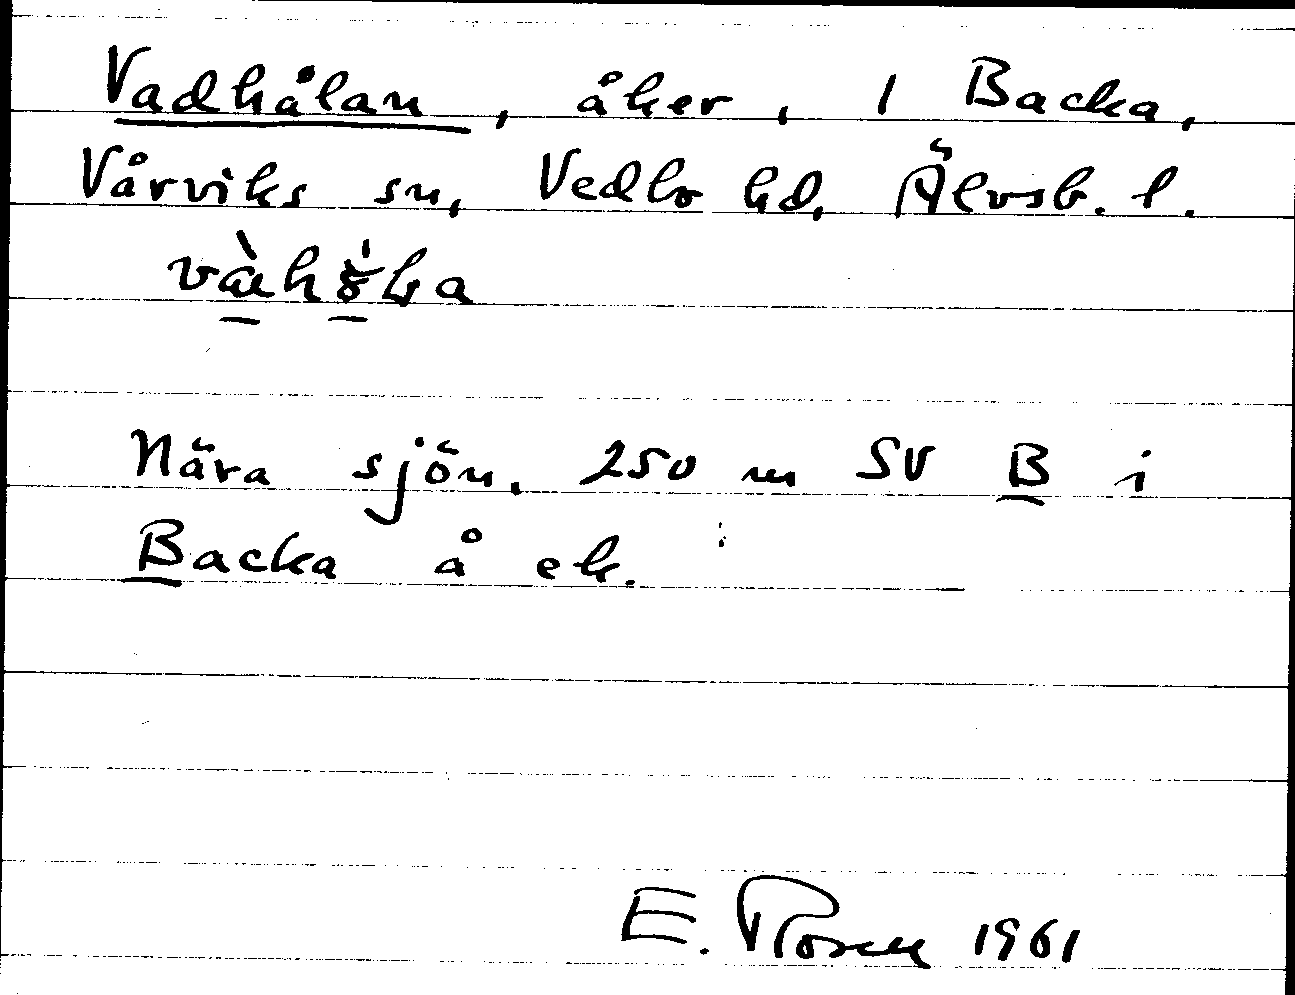 Vadhålan, åker, 1 Backa,
Vårviks sn, Vedbo hd, Älvsb. l.
Nära sjön. 250 m SV B i
Backa å ek.
E. Rosen 1961